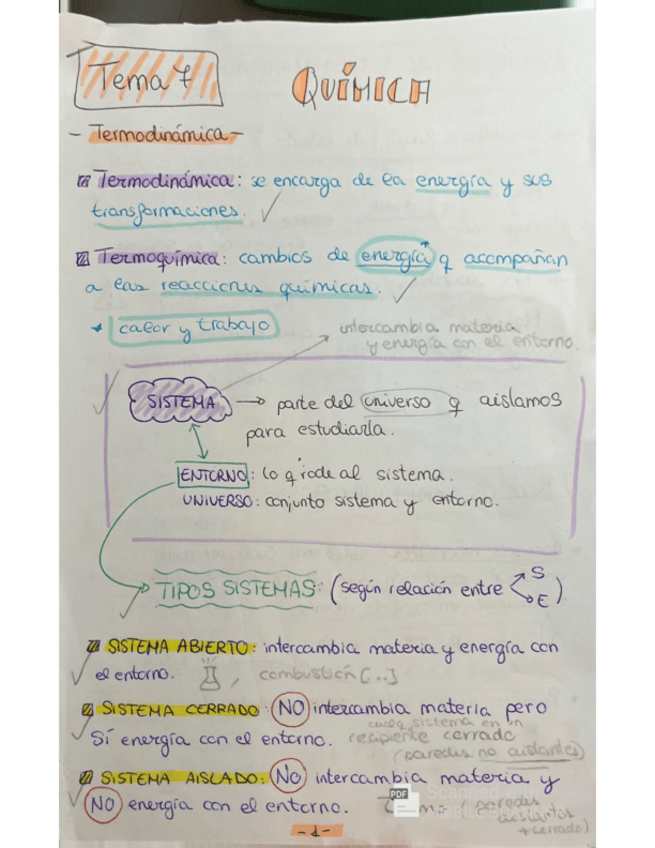 Tema 7
QUÍMICA
- Termodinámica -
Termodinámica: se encarga de la energía y sus
transformaciones.
Termoquímica: cambios de energía q acompañan
a las reacciones químicas.
* calor y trabajo
intercambia materia
y energía con el entorno.
SISTEMA → parte del universo q aislamos
para estudiarla.
ENTORNO: lo q rode al sistema.
UNIVERSO: conjunto sistema y entorno.
TIPOS SISTEMAS: (según relación entre S
E)
SISTEMA ABIERTO: intercambia materia y energía con
el entorno. , combustión [..]
SISTEMA CERRADO: NO intercambia materia pero
sistema en un
Sí energía con el entorno. recipiente cerrado
(paredes no aislantes)
SISTEMA AISLADO: No intercambia materia y
NO energía con el entorno. (paredes
aislantes
+ cerrado)
PDF Scanned with
-1-